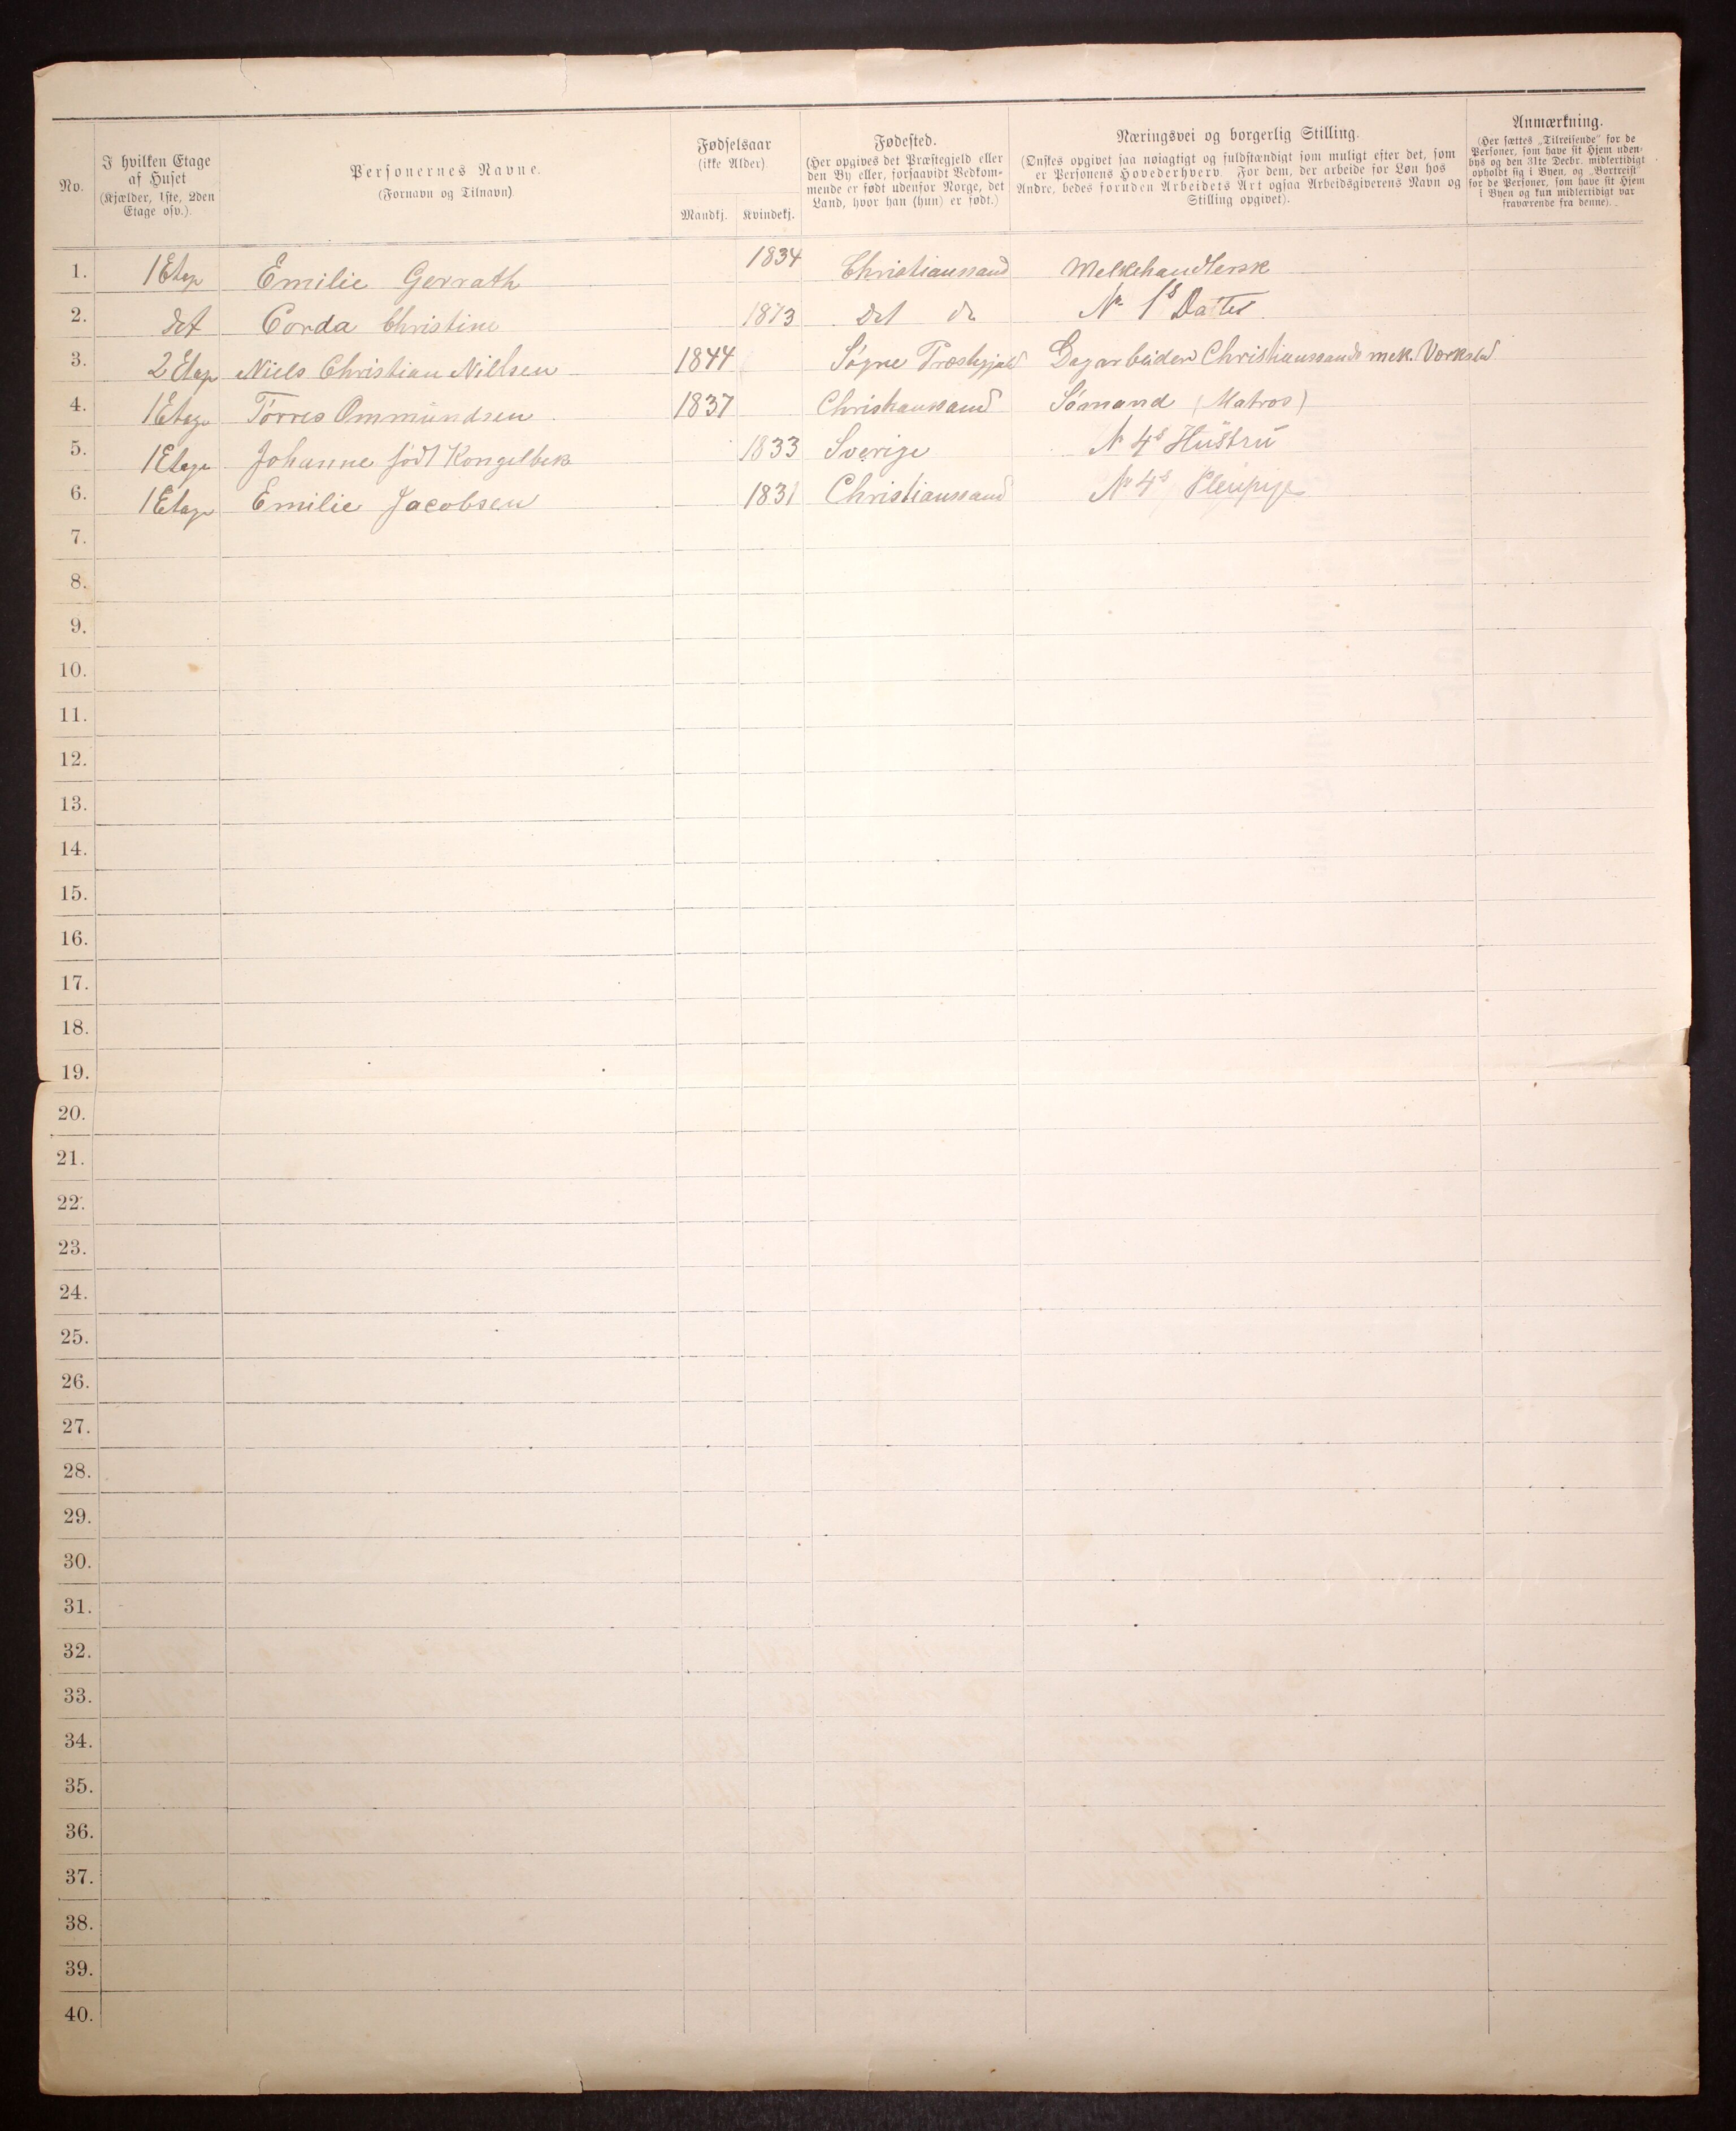 No.
I hvilken Etage
af Huset
(Kjælder, 1ste, 2den
Etage osv.).
Personernes Navne.
(Fornavn og Tilnavn)
Fødselsaar
(ikke Alder)
Mandkj.
Kvindekj.
Fødested.
(Her opgives det Præstegjeld eller
den By eller, forsaavidt Vedkom-
mende er født udenfor Norge, det
Land, hvor han (hun) er født.)
Næringsvei og borgerlig Stilling.
(Ønskes opgivet saa nøiagtigt og fuldstændigt som muligt efter det, som
er Personens Hovederhverv. For dem, der arbeide for Løn hos
Andre, bedes foruden Arbeidets Art ogsaa Arbeidsgiverens Navn og
Stilling opgivet).
Anmærkning.
(Her sættes „Tilreisende“ for de
Personer, som have sit Hjem uden-
bys og den 31te Decbr. midlertidigt
opholdt sig i Byen, og „Bortreist“
for de Personer, som have sit Hjem
i Byen og kun midlertidigt var
fraværende fra denne).
1. 1 Etage Emilie Gerrath 1834 Christianssand Melkehandlersk
2. det Corda Christine 1873 det do No 1s Datter
3. 2 Etage Niels Christian Nillsen 1844 Søgne Præstegjeld Dagarbeider Christianssands mek. Værksted
4. 1 Etage Torres Ommundsen 1837 Christianssand Sömand (Matros)
5. 1 Etage Johanne født Kongelbek 1833 Sverige No 4s Hustru
6. 1 Etage Emilie Jacobsen 1831 Christianssand No 4s Pleiepige
7.
8.
9.
10.
11.
12.
13.
14.
15.
16.
17.
18.
19.
20.
21.
22.
23.
24.
25.
26.
27.
28.
29.
30.
31.
32.
33.
34.
35.
36.
37.
38.
39.
40.